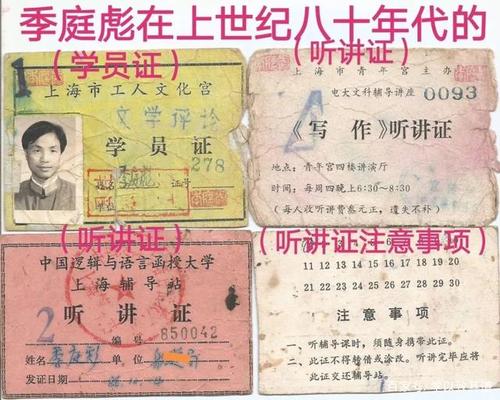 季庭彪在上世纪八十年代的
（学员证）
（听讲证）
1
上海市工人文化宫
文学评论
学员证
278
姓名 季庭彪 证号
上海市青年宫主办
电大文科辅导讲座 0093
《写作》听讲证
地点：青年宫四楼讲演厅
时间：每周四晚上6:30～8:30
（每人收听讲费叁元正，遗失不补）
（听讲证）
中国逻辑与语言函授大学
上海辅导站
2
听讲证
编号 850042
姓名 季庭彪 单位
发证日期
（听讲证注意事项）
11 12 13 14 15 16 17 18 19 20
21 22 23 24 25 26 27 28 29 30
注意事项
一、听辅导课时，须随身携带此证。
二、此证不得转借或涂改。听讲完毕应将
此证交还辅导站。